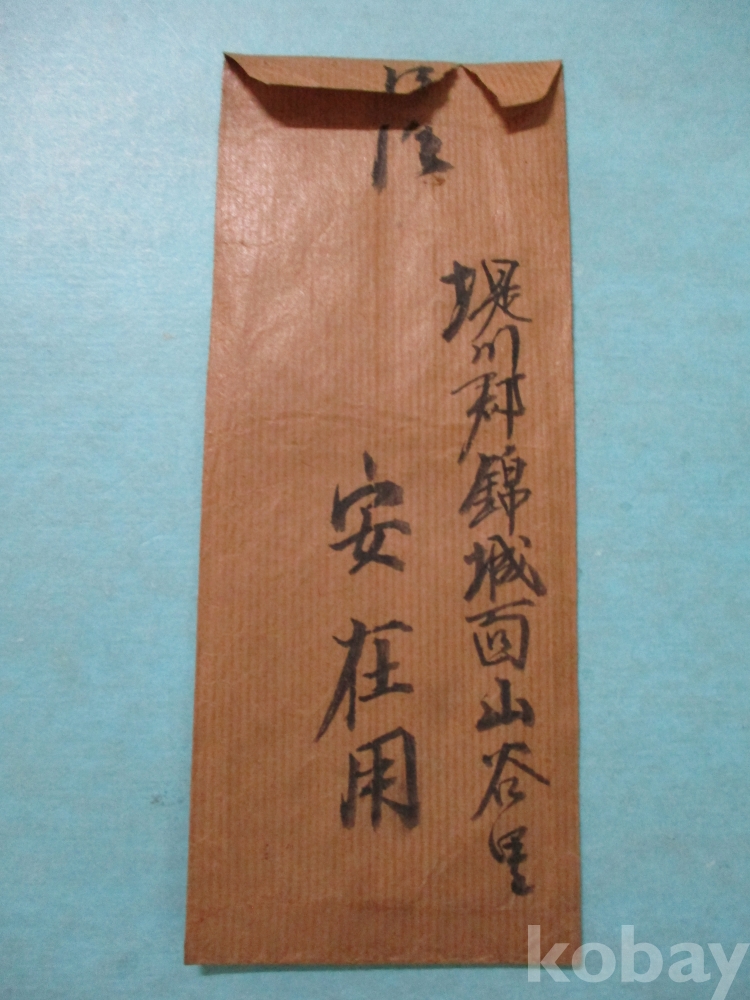 堤川郡錦城面山谷里
安在用
kobay